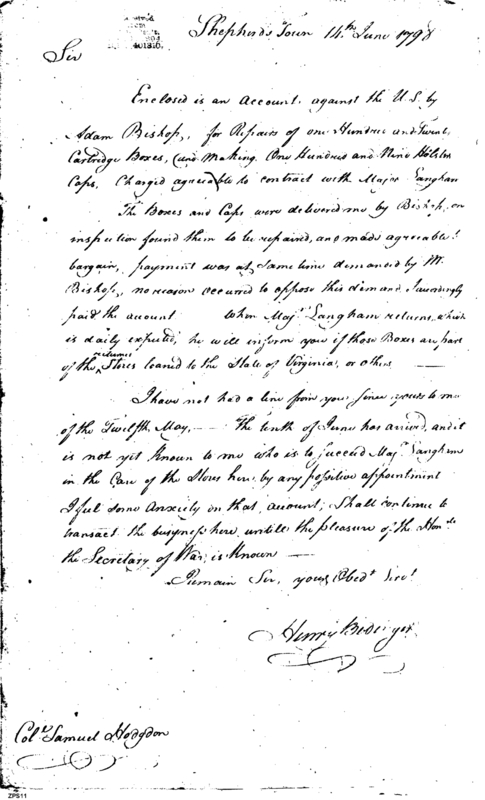 Shepherds Town 14th June 1798
401310.
Sir
Enclosed is an account against the U.S. by
Adam Bishop, for Repairs of one Hundred and Twenty
Cartridge Boxes, (and Making One Hundred and Nine Holster
Caps, Charged agreeable to contract with Major Langham
The Boxes and Caps were delivered me by Bishop, on
inspection found them to be repaired, and made agreeable to
bargain, payment was at same time demanded by Mr.
Bishop, no reason occured to oppose this demand I accordingly
paid the account When Majr. Langham returns, which
is daily expected, he will inform you if those Boxes are part
of the returned Stores loaned to the State of Virginia, or others
I have not had a line from you since yours to me
of the Twelfth May, — The tenth of June has arrived, and it
is not yet Known to me who is to succeed Majr. Langham
in the Care of the Stores here, by any possitive appointment
I feel some Anxiety on that account, Shall continue to
transact the busyness here untill the pleasure of the Honble
the Secretary of War, is Known —
I remain Sir, your Obedt Servt
Henry Bedinger
Colo. Samuel Hodgdon
ZPS11